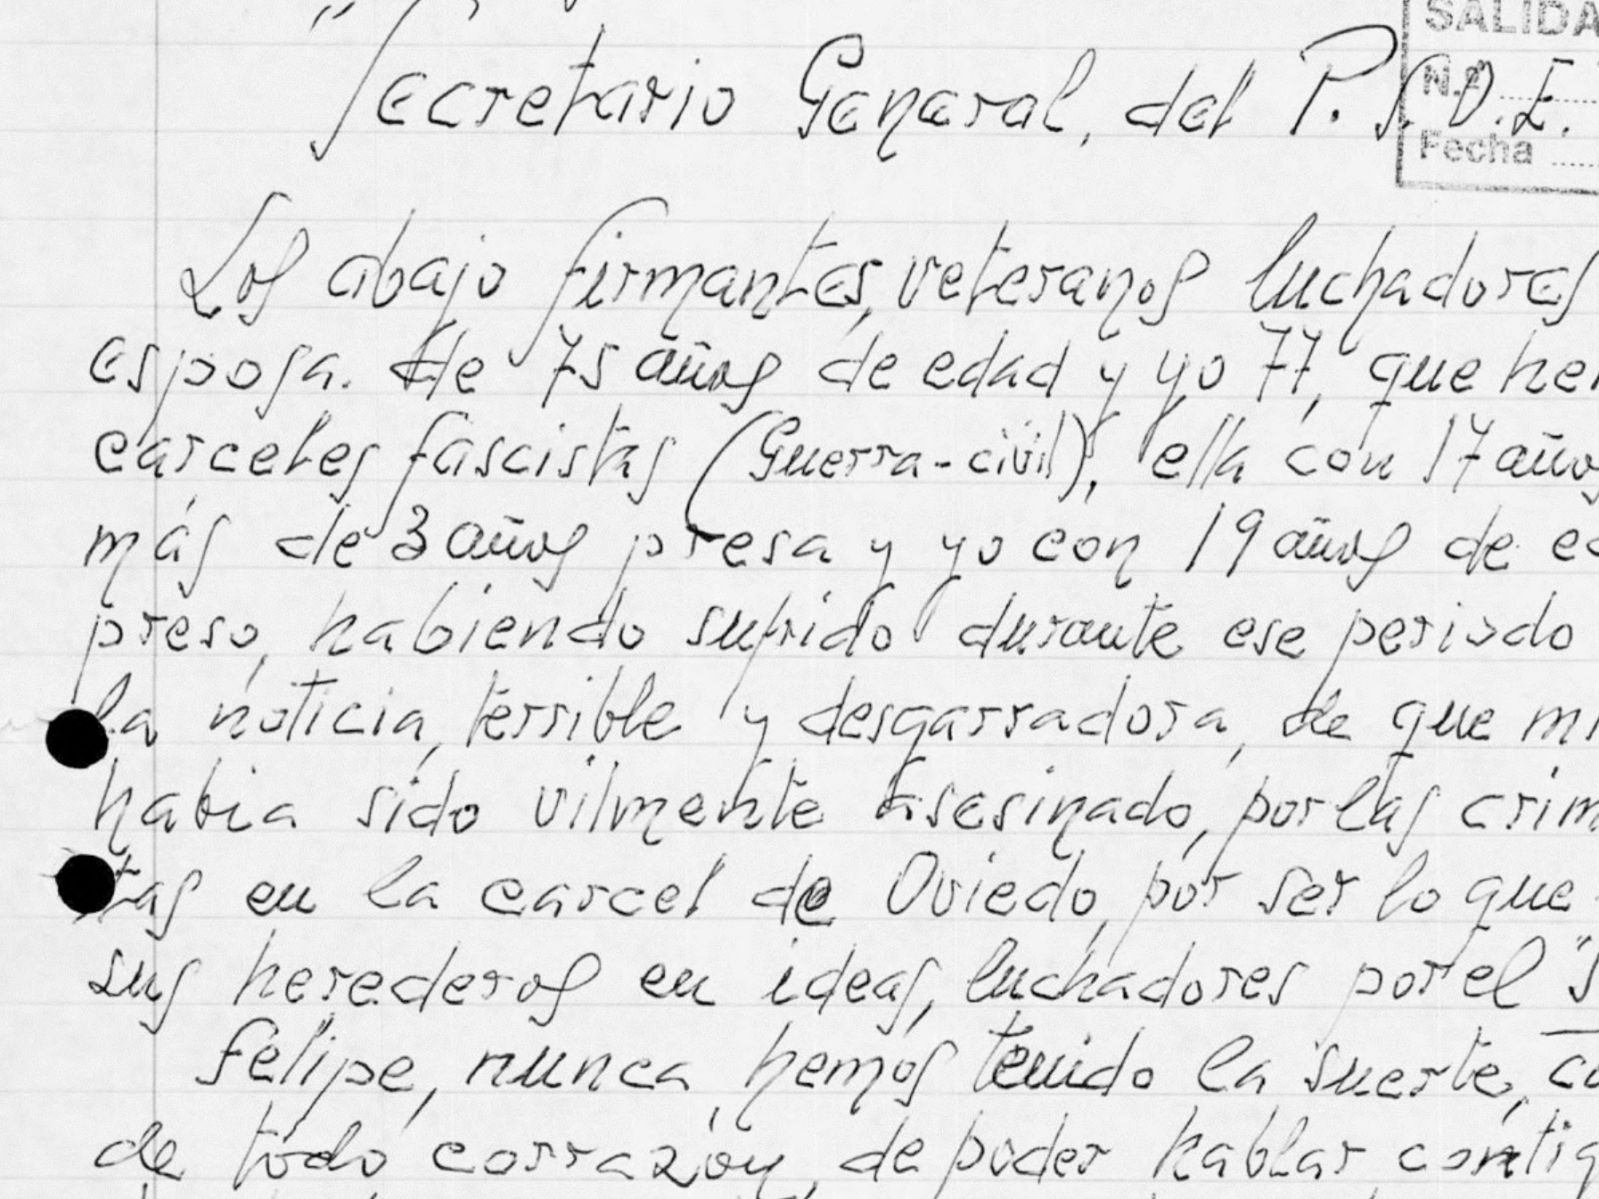 SALIDA
Secretario General, del P.S.O.E.
N.º
Fecha
Los abajo firmantes, veteranos luchadores
esposa. de 75 años de edad y yo 77, que he
carceles fascistas (Guerra-civil), ella con 17 años
más de 3 años presa y yo con 19 años de e
preso, habiendo sufrido durante ese periodo
la noticia, terrible y desgarradora, de que mi
habia sido vilmente asesinado, por las crim
tas en la carcel de Oviedo, por ser lo que
sus herederos en ideas, luchadores por el "S
Felipe, nunca hemos tenido la suerte, co
de todo corrazón, de poder hablar contig